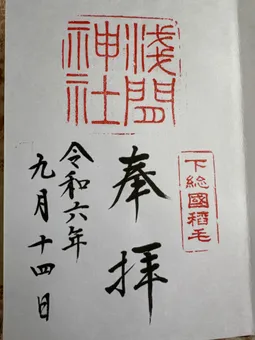 下総國稻毛
奉拝
浅間
神社
令和六年
九月十四日